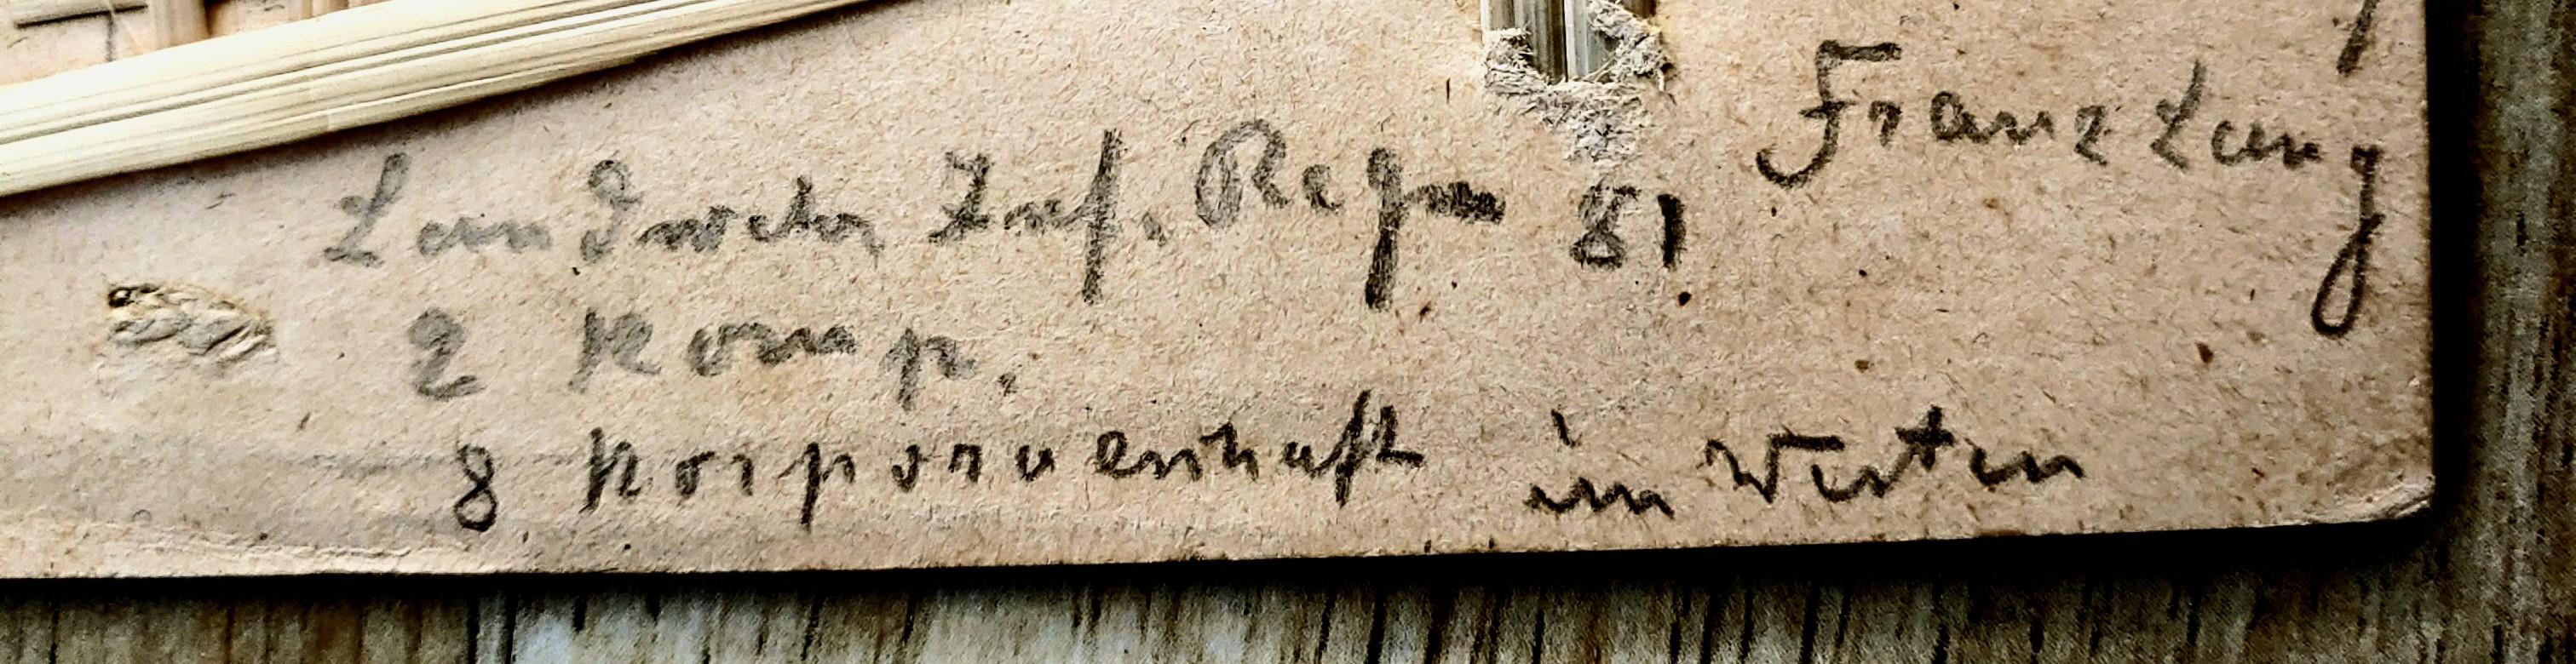 Franz Lang
Landwehr Inf. Reg 81
2 Komp.
8 Korporalschaft im Westen